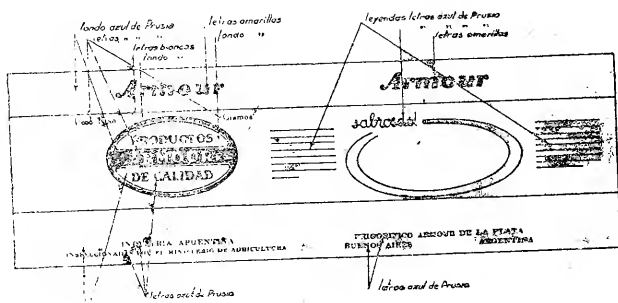 fondo azul de Prusia
letras " " "
letras blancas
fondo "
letras amarillas
fondo "
leyendas letras azul de Prusia
" " " "
letras amarillas
Armour
Armour
Gramos
sabrosol
PRODUCTOS
Armour
DE CALIDAD
INDUSTRIA ARGENTINA
INSPECCIONADO POR EL MINISTERIO DE AGRICULTURA
FRIGORIFICO ARMOUR DE LA PLATA
BUENOS AIRES ARGENTINA
letras azul de Prusia
letras azul de Prusia